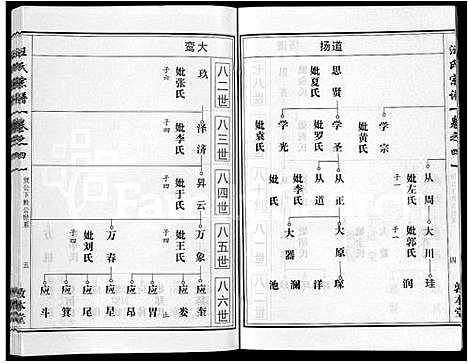 道扬
思贤
妣夏氏
学宗
妣黄氏
学圣
妣罗氏
学光
妣袁氏
从周
妣左氏
子一
从正
从道
妣李氏
大川
妣郭氏
子一
大原
大器
珪
润
琛
洋
澜
池
四
敦本堂
大鸾
八二世
八三世
八四世
八五世
八六世
玖
妣张氏
子六
泽济
妣李氏
子四
昇云
妣于氏
子四
万象
妣王氏
子四
万春
妣刘氏
子四
应奎
应娄
应胃
应昂
应星
应尾
应箕
应斗
五